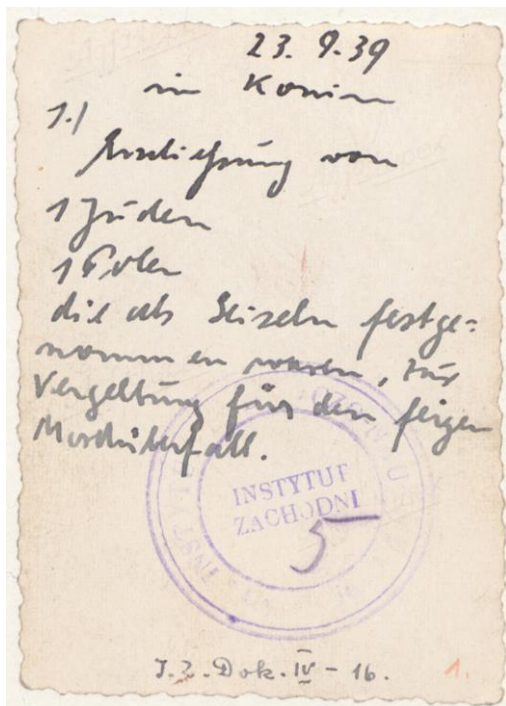 23. 9. 39
in Konin
1.)
Erschießung von
1 Juden
1 Polen
die als Geiseln festge=
nommen waren, zur
Vergeltung für den feigen
Mordüberfall.
INSTYTUT
ZACHODNI
5
J.Z. Dok. IV - 16.
1.